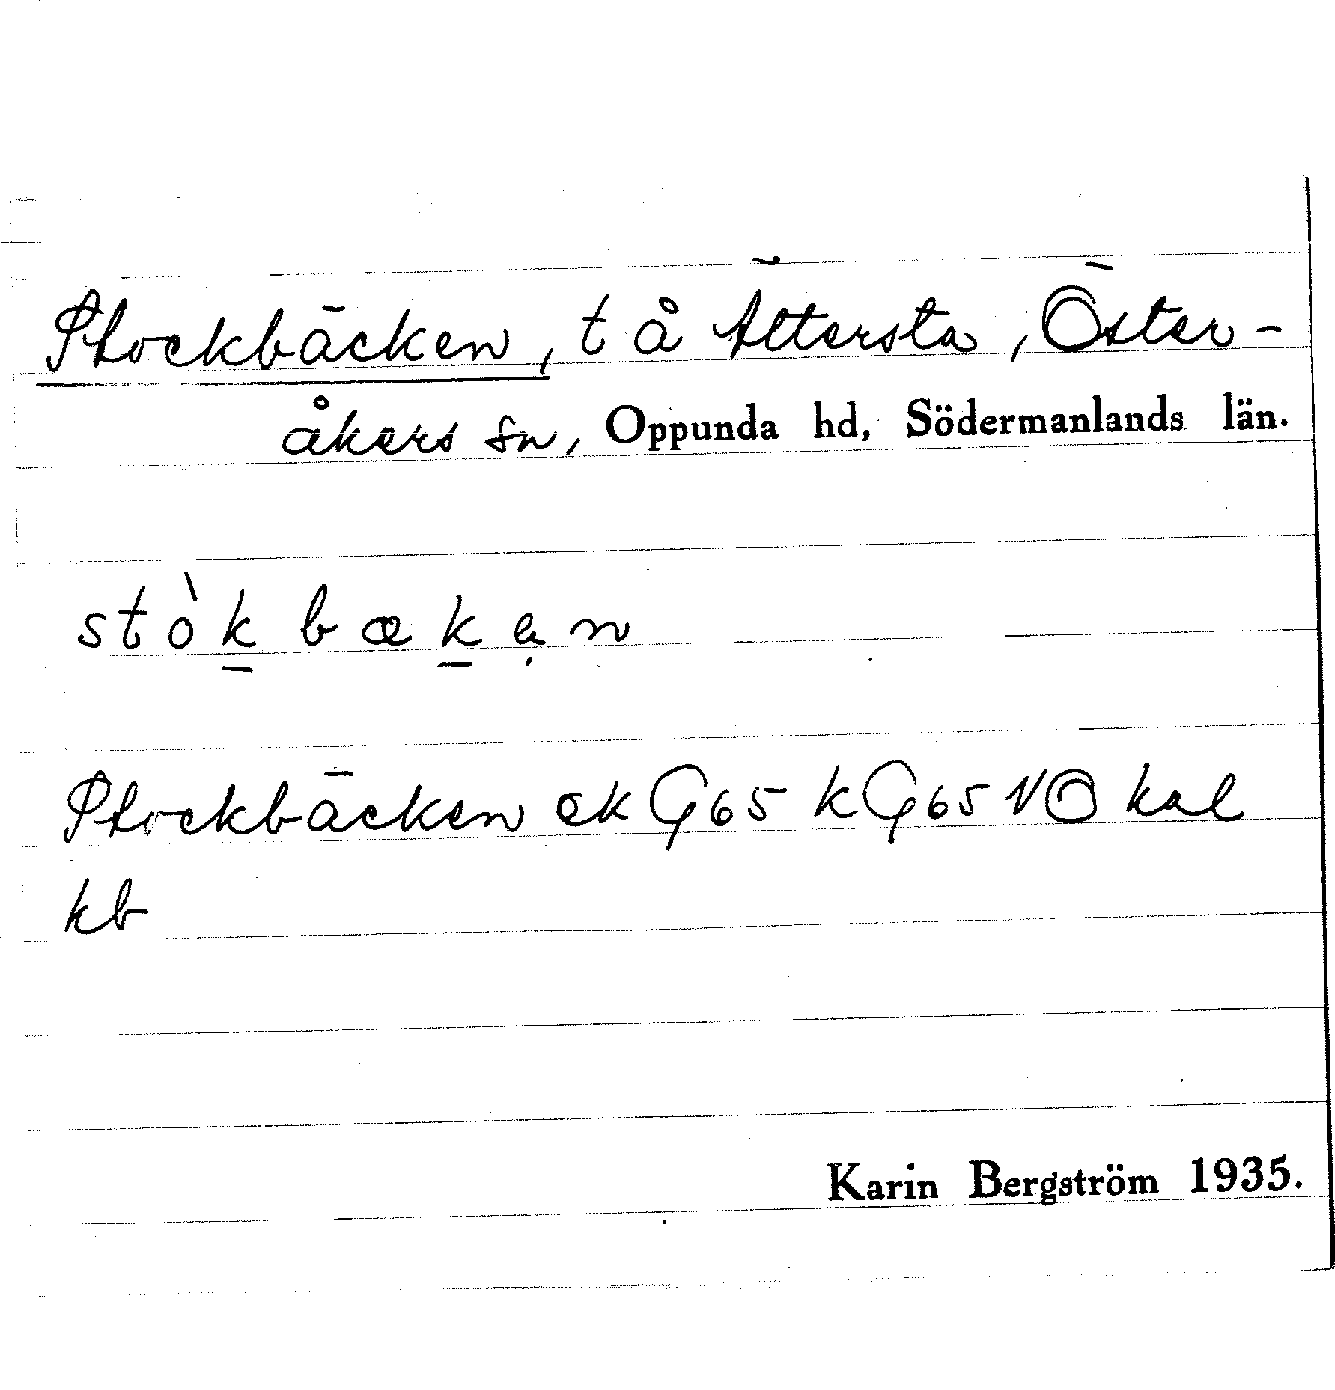 Stockbäcken, t å Ättersta, Öster-
åkers sn, Oppunda hd, Södermanlands län.
stò̀k bæken
Stockbäcken ek G65 kG65 NO kal
kb
Karin Bergström 1935.